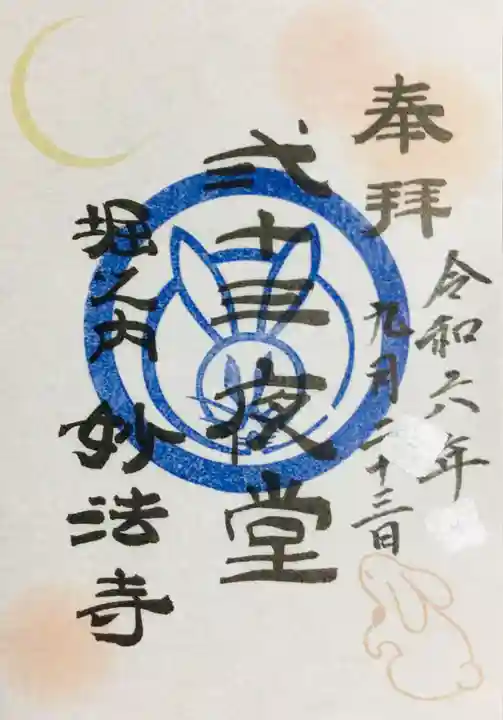 奉拝
令和六年
九月二十三日
弐十三夜堂
堀之内 妙法寺